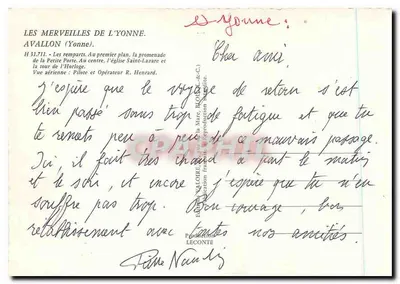 89 Yonne :
LES MERVEILLES DE L'YONNE.
AVALLON (Yonne).
H 31.711. - Les remparts. Au premier plan, la promenade
de la Petite Porte. Au centre, l'église Saint-Lazare et
la tour de l'Horloge.
Vue aérienne : Pilote et Opérateur R. Henrard.
Cher ami.
J'espère que le voyage de retour s'est
bien passé sans trop de fatigue et que tu
te remets peu à peu de ce mauvais passage.
Ici, il fait très chaud à part le matin
et le soir, et encore ! j'espère que tu n'en
souffre pas trop. Bon courage, bon
rétablissement avec toutes nos amitiés.
LECONTE
Pierre